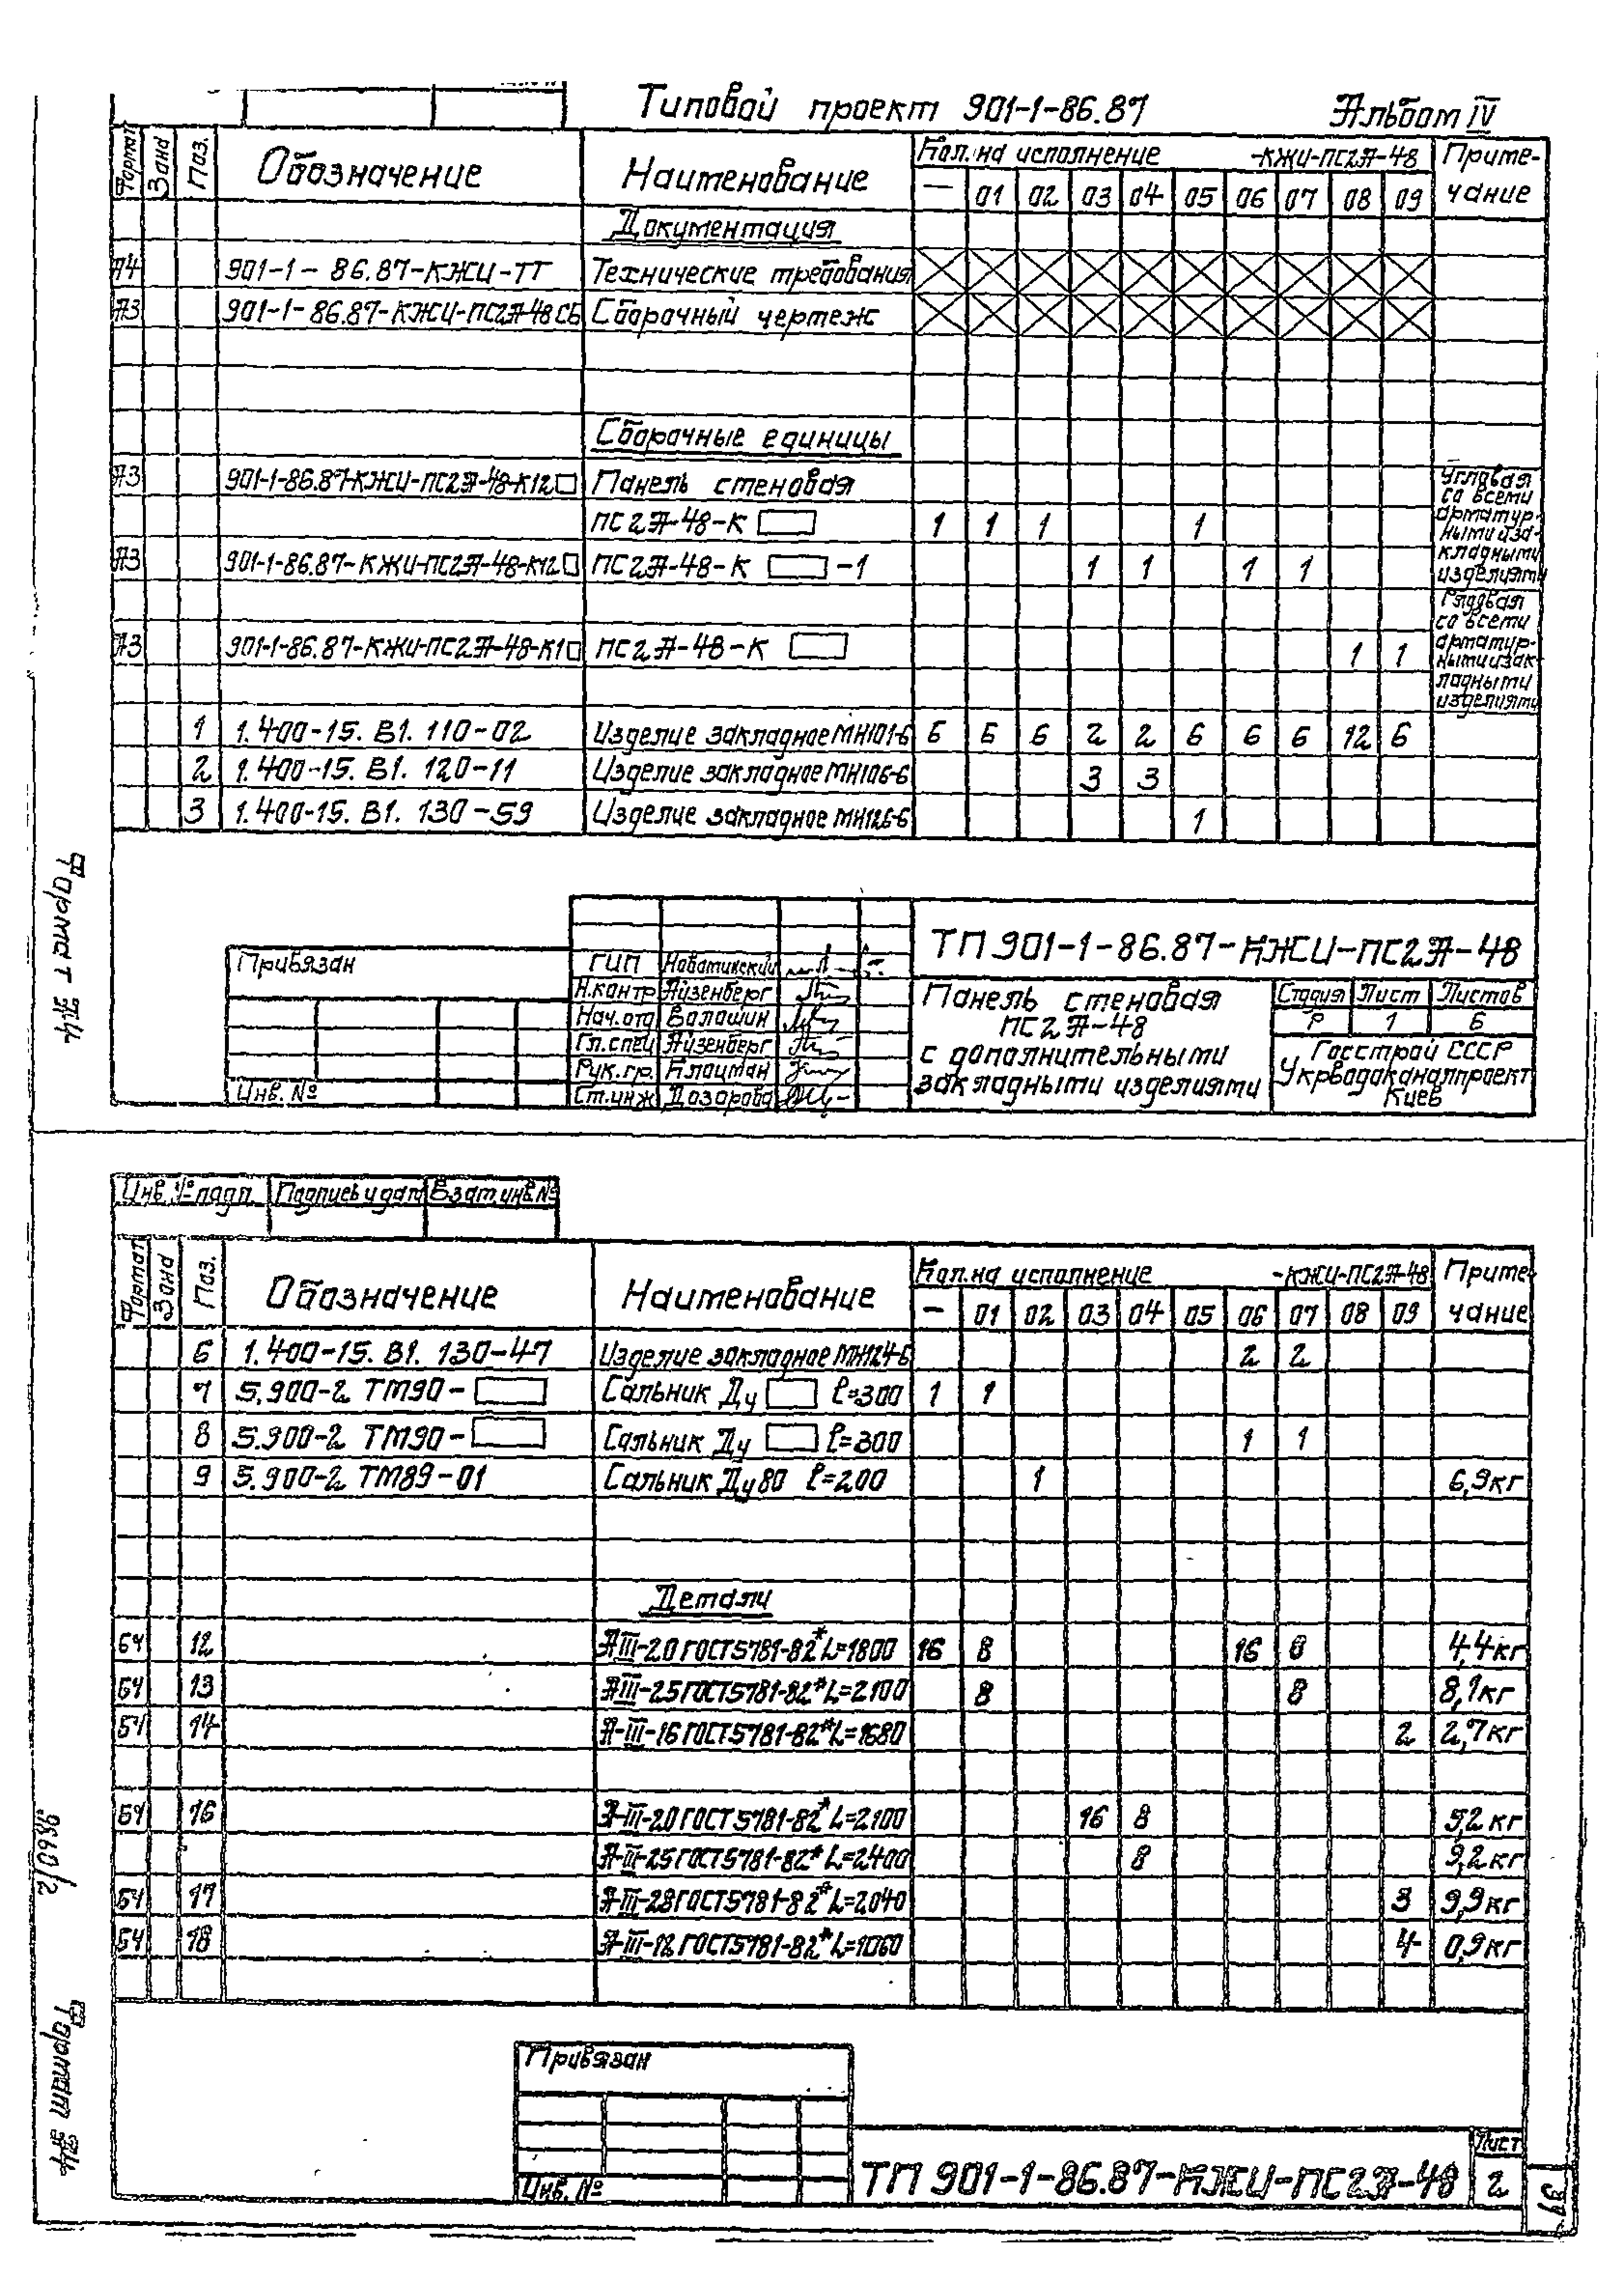 Типовой проект 901-1-86.87 Альбом IV
Формат Зона Поз. Обозначение Наименование Кол. на исполнение -КЖИ-ПС2А-48 Приме-
чание
— 01 02 03 04 05 06 07 08 09
Документация
А4 901-1-86.87-КЖИ-ТТ Технические требования
А3 901-1-86.87-КЖИ-ПС2А-48СБ Сборочный чертеж
Сборочные единицы
А3 901-1-86.87-КЖИ-ПС2А-48-К12 Панель стеновая
ПС2А-48-К 1 1 1 1
Угловая
со всеми
арматур-
ными и за-
кладными
изделиями
А3 901-1-86.87-КЖИ-ПС2А-48-К12 ПС2А-48-К -1 1 1 1 1
А3 901-1-86.87-КЖИ-ПС2А-48-К1 ПС2А-48-К 1 1
Рядовая
со всеми
арматур-
ными и зак-
ладными
изделиями
1 1.400-15.В1.110-02 Изделие закладное МН101-6 6 6 6 2 2 6 6 6 12 6
2 1.400-15.В1.120-11 Изделие закладное МН106-6 3 3
3 1.400-15.В1.130-59 Изделие закладное МН126-6 1
Формат А4
Привязан
Инв. №
ГИП
Н.контр Айзенберг
Нач.отд
Гл.спец Айзенберг
Рук.гр. Клоцман
Ст.инж
ТП 901-1-86.87-КЖИ-ПС2А-48
Панель стеновая
ПС2А-48
с дополнительными
закладными изделиями
Стадия Лист Листов
Р 1 6
Госстрой СССР
Укрводоканалпроект
Киев
Инв. № подл. Подпись и дата Взам. инв №
Формат Зона Поз. Обозначение Наименование Кол. на исполнение -КЖИ-ПС2А-48 Приме-
чание
— 01 02 03 04 05 06 07 08 09
6 1.400-15.В1.130-47 Изделие закладное МН124-6 2 2
7 5.900-2 ТМ90- Сальник Ду ℓ=300 1 1
8 5.900-2 ТМ90- Сальник Ду ℓ=300 1 1
9 5.900-2 ТМ89-01 Сальник Ду80 ℓ=200 1 6,9кг
Детали
БЧ 12 АIII-20 ГОСТ5781-82* L=1800 16 8 16 8 4,4кг
БЧ 13 АIII-25 ГОСТ5781-82* L=2100 8 8 8,1кг
БЧ 14 А-III-16 ГОСТ5781-82* L=1680 2 2,7кг
БЧ 16 А-III-20 ГОСТ5781-82* L=2100 16 8 5,2кг
А-III-25 ГОСТ5781-82* L=2400 8 9,2кг
БЧ 17 А-III-28 ГОСТ5781-82* L=2040 3 9,9кг
БЧ 18 А-III-12 ГОСТ5781-82* L=1060 4 0,9кг
9860/2
Формат А4
Привязан
Инв. №
ТП 901-1-86.87-КЖИ-ПС2А-48
Лист
2
39